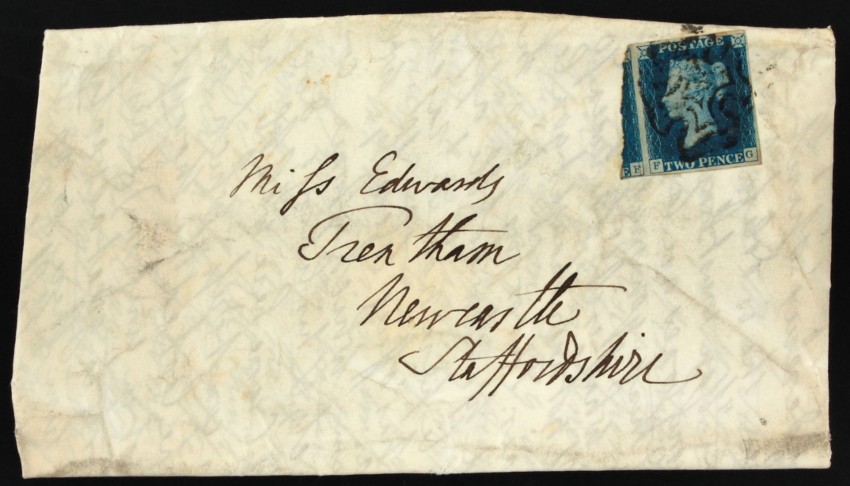 POSTAGE
E F F TWO PENCE G
Miſs Edwards
Trentham
Newcastle
Staffordshire